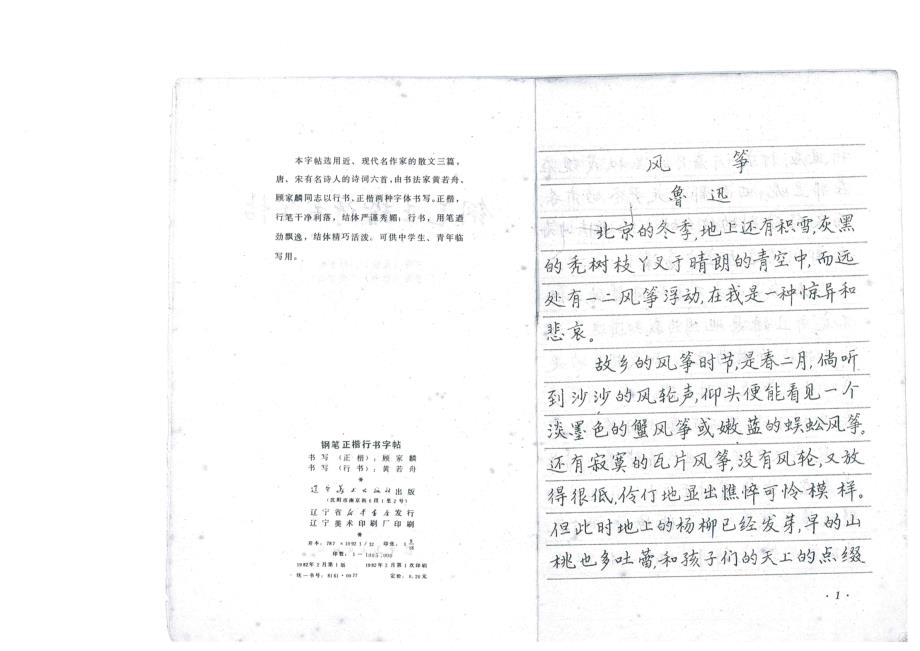 本字帖选用近、现代名作家的散文三篇，
唐、宋有名诗人的诗词六首，由书法家黄若舟、
顾家麟同志以行书、正楷两种字体书写。正楷，
行笔干净利落，结体严谨秀媚；行书，用笔遒
劲飘逸，结体精巧活泼。可供中学生、青年临
写用。
钢笔正楷行书字帖
书写（正楷）：顾家麟
书写（行书）：黄若舟
辽宁美术出版社出版
（沈阳市南京街6段1里2号）
辽宁省新华书店发行
辽宁美术印刷厂印刷
开本：787×1092 1/32 印张：1
印数：1—
1982年2月第1版 1982年2月第1次印刷
统一书号：8161·0077 定价：0.20元
风筝
鲁迅
北京的冬季，地上还有积雪，灰黑
的秃树枝丫叉于晴朗的青空中，而远
处有一二风筝浮动，在我是一种惊异和
悲哀。
故乡的风筝时节，是春二月，倘听
到沙沙的风轮声，仰头便能看见一个
淡墨色的蟹风筝或嫩蓝的蜈蚣风筝。
还有寂寞的瓦片风筝，没有风轮，又放
得很低，伶仃地显出憔悴可怜模样。
但此时地上的杨柳已经发芽，早的山
桃也多吐蕾，和孩子们的天上的点缀
·1·